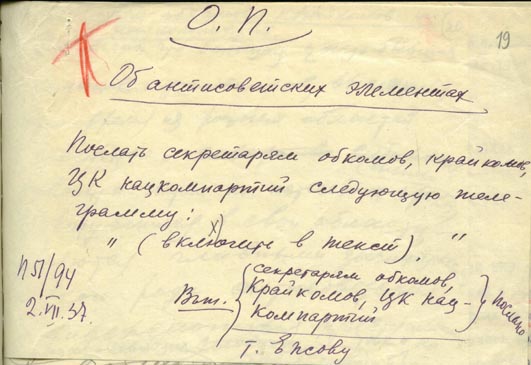 О. П.
19
Об антисоветских элементах
Послать секретарям обкомов, крайкомов,
ЦК нацкомпартий следующую теле-
грамму:
" (включить в текст). "
х)
П51/94
2.VII.37.
Вып.
секретарям обкомов,
Крайкомов, ЦК нац-
компартий
послано
т. Ежову